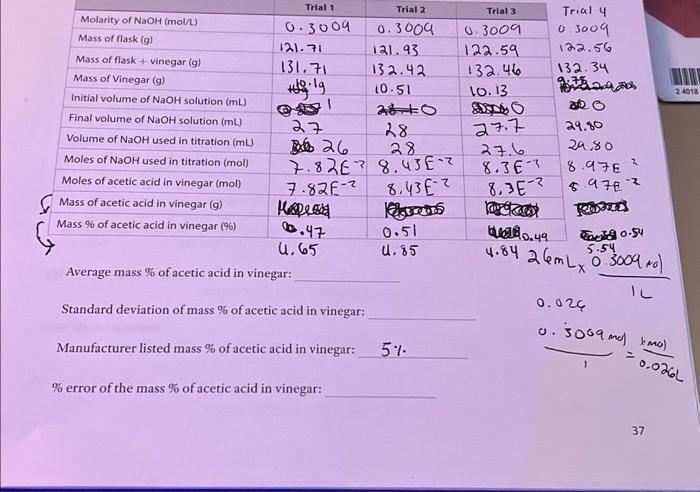 Trial 1 Trial 2 Trial 3 Trial 4
Molarity of NaOH (mol/L) 0.3009 0.3009 0.3009 0.3009
Mass of flask (g) 121.71 121.93 122.59 122.56
Mass of flask + vinegar (g) 131.71 132.42 132.46 132.34
Mass of Vinegar (g) 10.51 10.13 9.78
Initial volume of NaOH solution (mL) 1 0 0 0
Final volume of NaOH solution (mL) 27 28 27.7 29.80
Volume of NaOH used in titration (mL) 26 28 27.6 29.80
Moles of NaOH used in titration (mol) 7.82E-3 8.43E-3 8.3E-3 8.97E
Moles of acetic acid in vinegar (mol) 7.82E-3 8.43E-3 8.3E-3 8.97E-3
Mass of acetic acid in vinegar (g)
Mass % of acetic acid in vinegar (%) 0.47 0.51 0.49 0.54
4.65 4.85 4.84 5.54
26mL x 0.3009 mol
1L
Average mass % of acetic acid in vinegar:
0.026
Standard deviation of mass % of acetic acid in vinegar:
0.3009 mol = x mol
1 0.026L
Manufacturer listed mass % of acetic acid in vinegar: 5%
% error of the mass % of acetic acid in vinegar:
37
2 4018